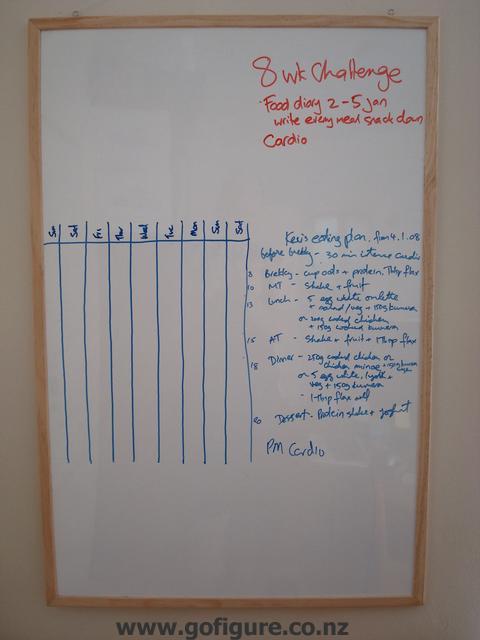 8 wk Challenge
Food diary 2-5 jan
write every meal snack down
Cardio
Sun Sat Fri Thur Wed Tue Mon Sun Sat
Keri's eating plan. from 4.1.08
before brekky - 30 min intense cardio
8 Brekky - cup oats + protein. 1tbsp flax
10 MT - Shake + fruit
13 Lunch - 5 egg white omlette
+ salad/veg + 150g kumera
or 200g cooked chicken
+ 150g cooked kumera
15 AT - Shake + fruit + 1tbsp flax
18 Dinner - 250g cooked chicken or
chicken mince + 150g kumera
or 5 egg white, 1 yolk +
veg + 150g kumera
- 1tbsp flax
20 Dessert - Protein shake + yoghurt
PM Cardio
www.gofigure.co.nz